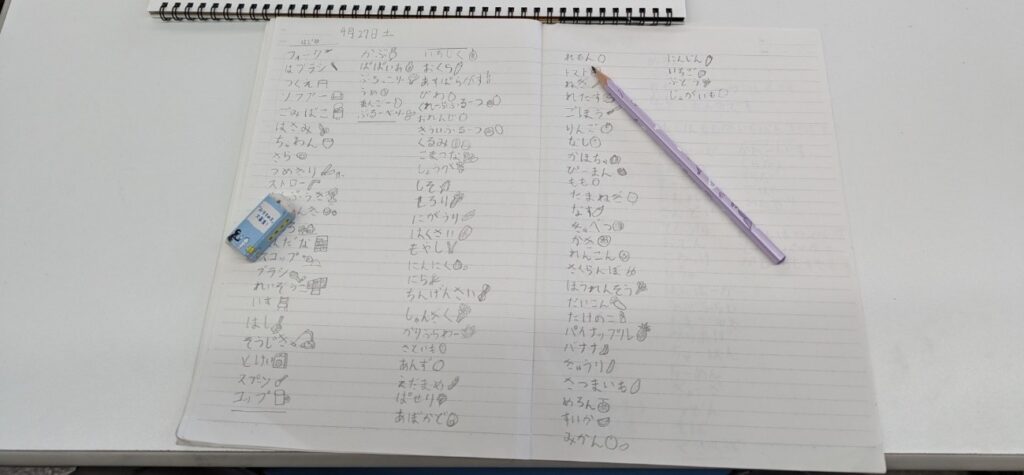 4月27日土
フォーク
はブラシ
つくえ
ソファー
ごみばこ
はさみ
ちゃわん
さら
つめきり
ストロー
んだな
スコップ
ブラシ
れいぞうこ
いす
はし
そうじき
とけい
スプン
コップ
かぶ
ぱぱいあ
ぶろっこり
うめ
まんごー
ぶるーべり
いちじく
おくら
あすぱらがす
びわ
ぐれーぷふるーつ
おれんじ
きういふるーつ
くるみ
こまつな
しょうが
しそ
せろり
にがうり
はくさい
もやし
にんにく
にら
ちんげんさい
しゅんぎく
かりふらわー
さといも
あんず
えだまめ
ぱせり
あぼかど
れもん
トマト
ねぎ
れたす
ごぼう
りんご
なし
かぼちゃ
ぴーまん
もも
たまねぎ
なす
きゃべつ
かき
れんこん
さくらんぼ
ほうれんそう
だいこん
たけのこ
パイナップリレ
バナナ
きゅうり
さつまいも
めろん
すいか
みかん
にんじん
いちご
ぶどう
じゃがいも